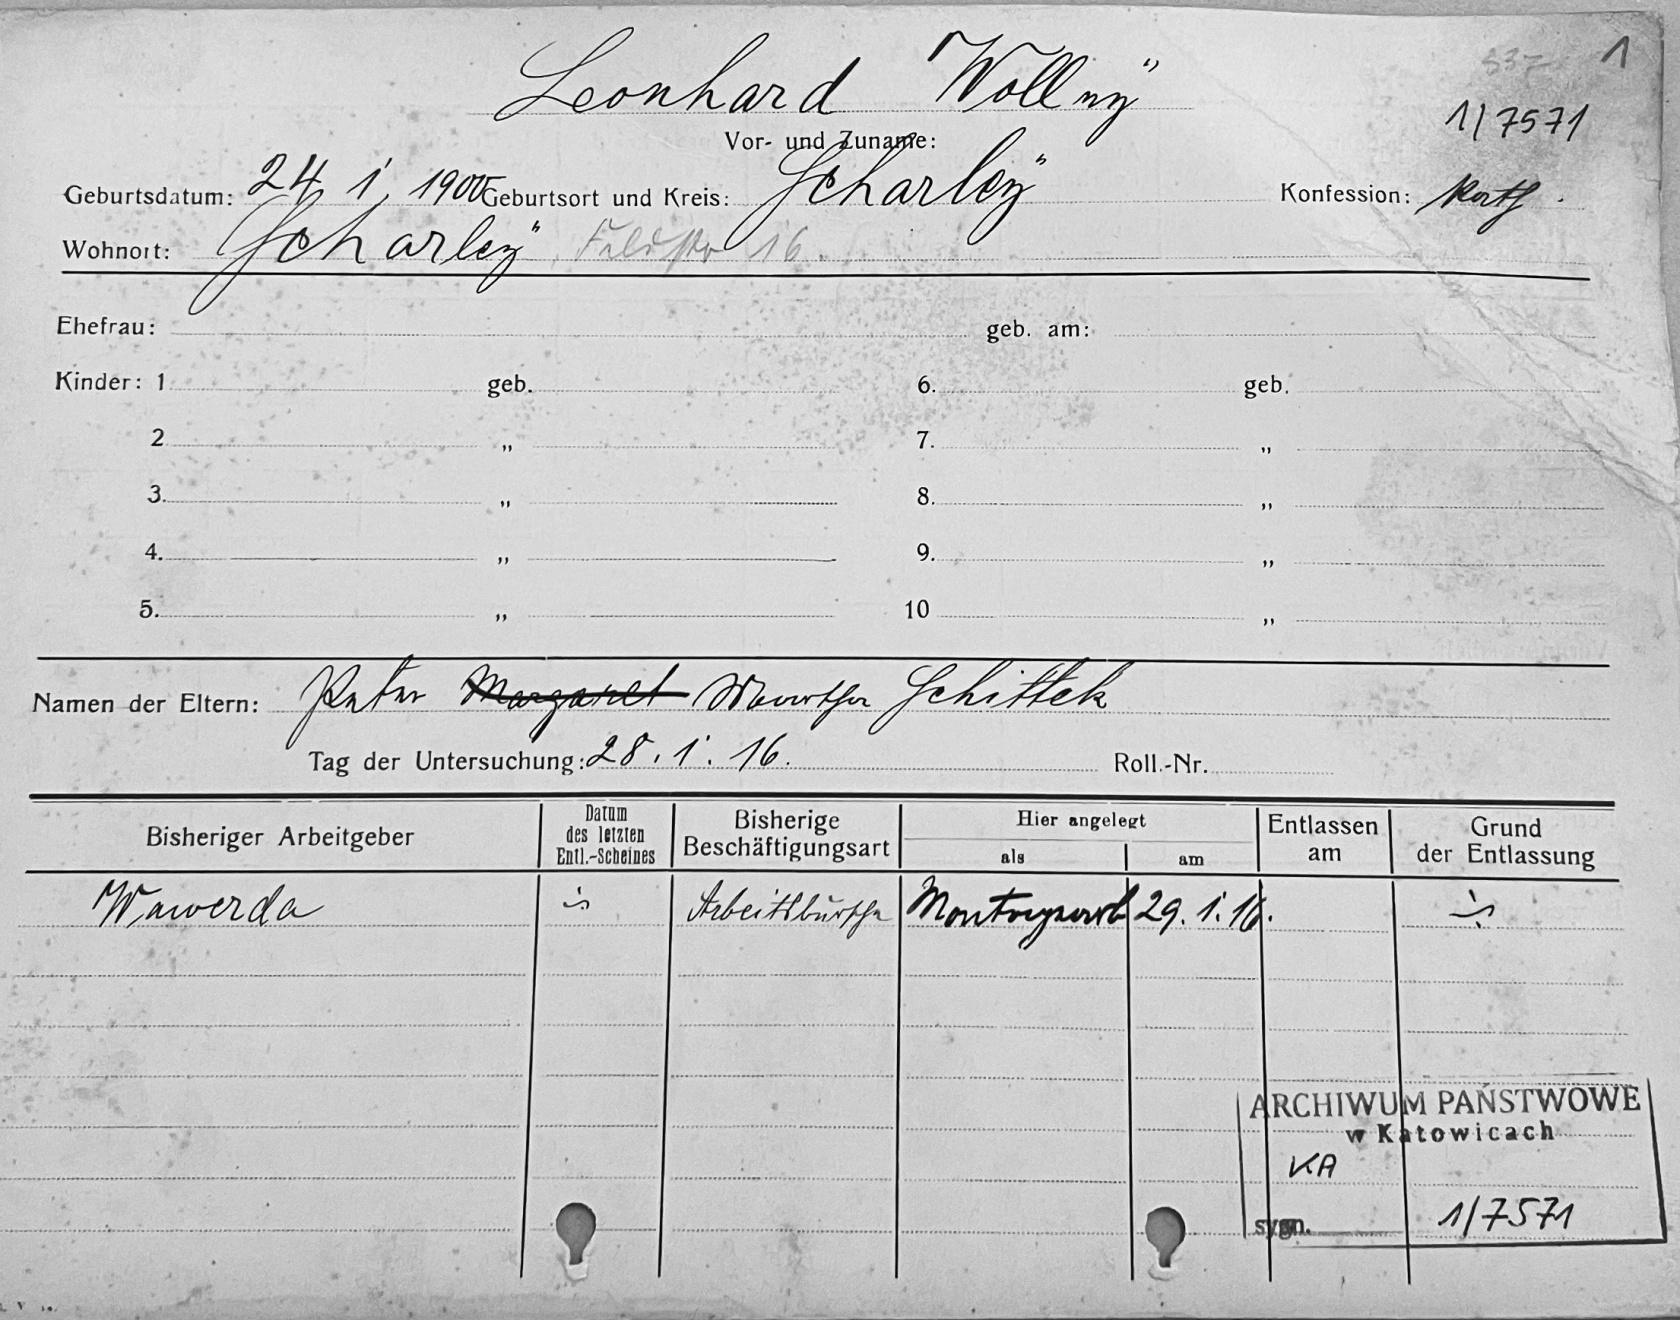 1
1/7571
Leonhard Wollny
Vor- und Zuname:
Geburtsdatum: 24. 1. 1900 Geburtsort und Kreis: Scharley Konfession: kath.
Wohnort: Scharley, Feldstr 16.
Ehefrau: geb. am:
Kinder: 1 geb. 6. geb.
2 „ 7. „
3. „ 8. „
4. „ 9. „
5. „ 10 „
Namen der Eltern: Peter Margaret Martha Schittek
Tag der Untersuchung: 28. 1. 16. Roll.-Nr.
Bisheriger Arbeitgeber Datum des letzten Entl.-Scheines Bisherige Beschäftigungsart Hier angelegt als am Entlassen am Grund der Entlassung
Wawerda Arbeitsbursche 29. 1. 16.
ARCHIWUM PAŃSTWOWE
w Katowicach
KA
sygn. 1/7571